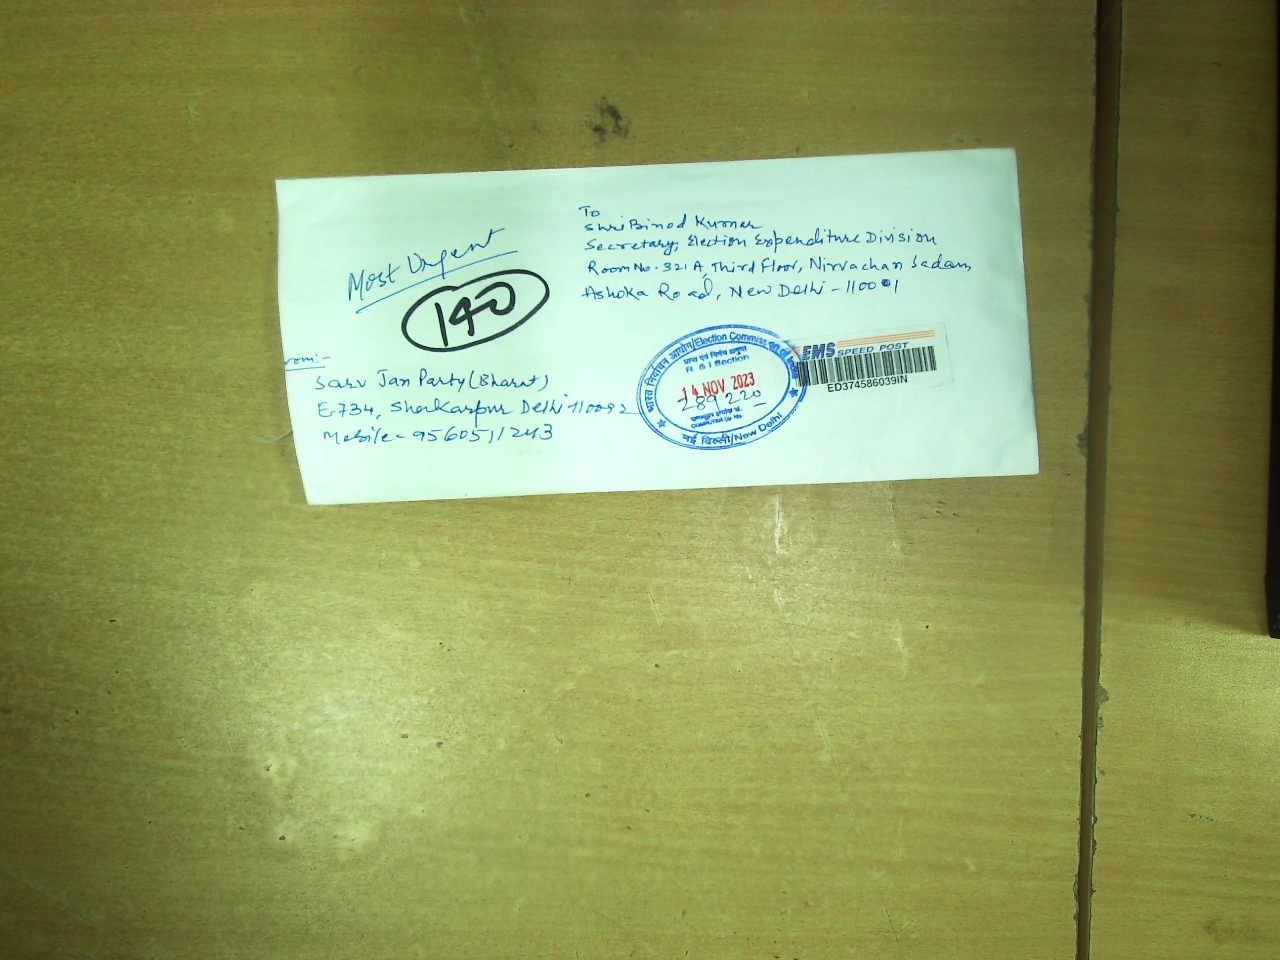 To
Shri Binod Kumar
Secretary, Election Expenditure Division
Room No. 321 A, Third Floor, Nirvachan Sadan,
Ashoka Road, New Delhi - 110001
Most Urgent
140
rom:-
Sarv Jan Party (Bharat)
E-734, Shakarpur Delhi-110092
Mobile- 9560511243
भारत निर्वाचन आयोग/Election Commission of India
R & I Section
14 NOV 2023
289220
COMPUTER
नई दिल्ली/New Delhi
EMS SPEED POST
ED374586039IN